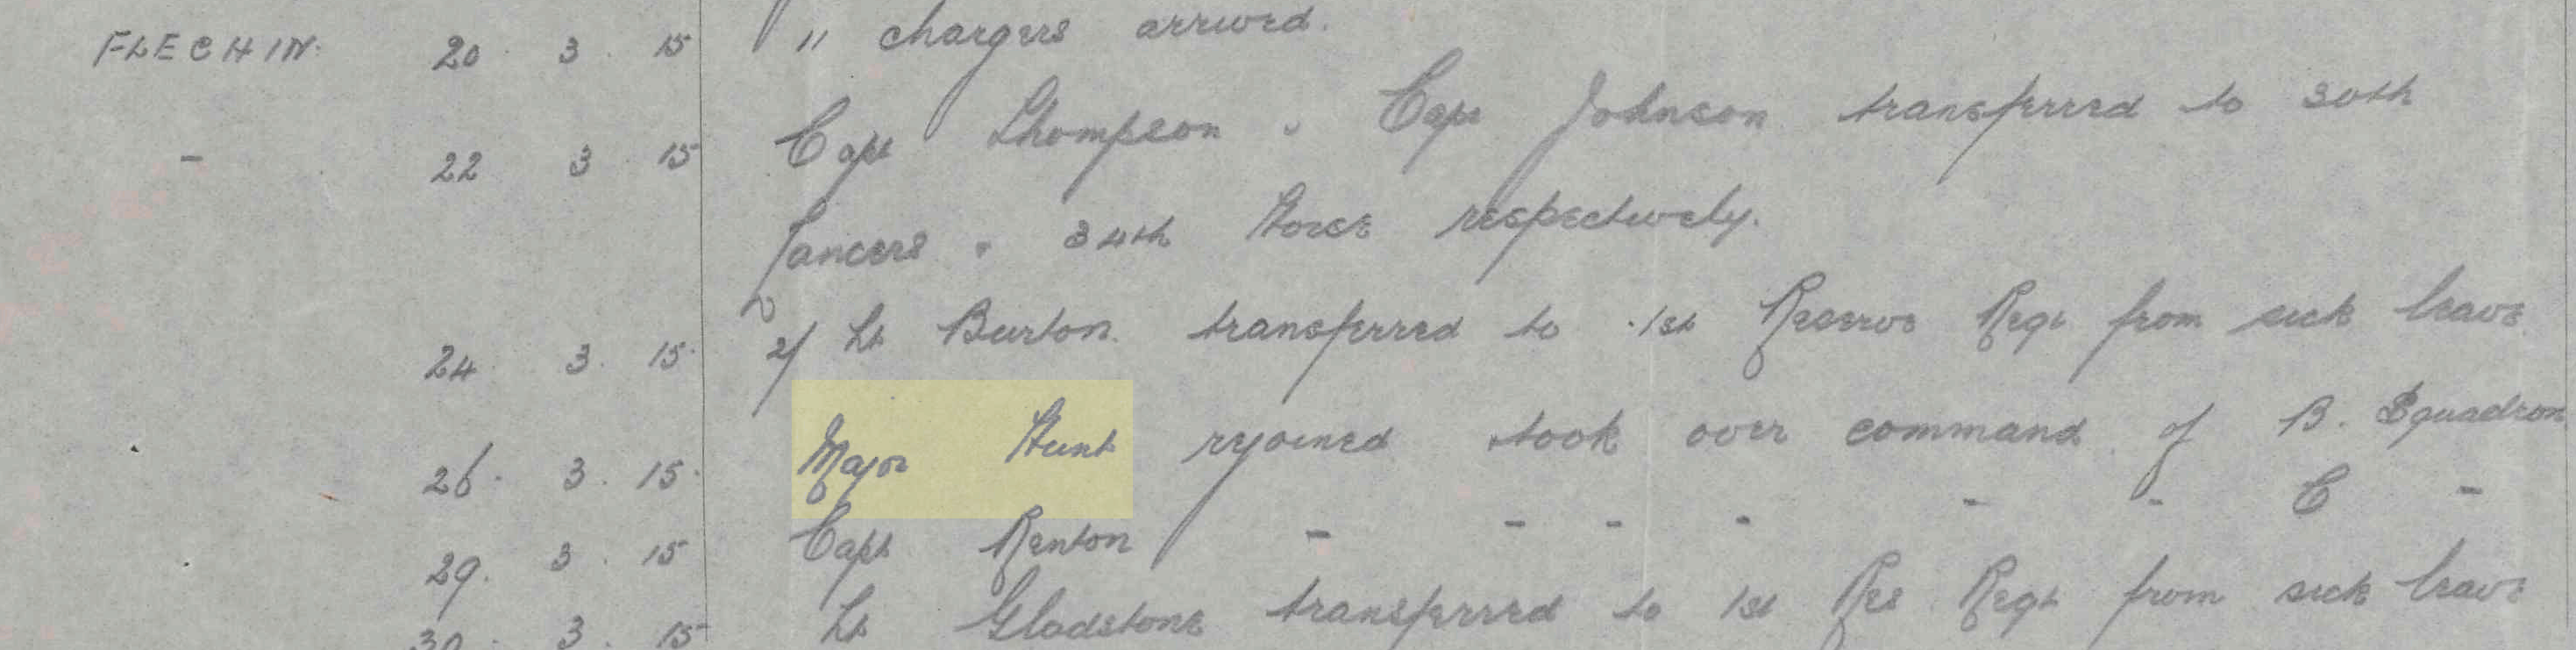 FLECHIN. 20 3 15 11 chargers arrived.
- 22 3 15 Capt Thompson & Capt Johnson transferred to 30th
Lancers & 34th Horse respectively.
24 3 15 2/ Lt Burton transferred to 1st Reserve Regt from sick leave
26 3 15 Major Hunt rejoined & took over command of B. Squadron
29 3 15 Capt Renton - - - - - - C -
30 3 15 Lt Gladstone transferred to 1st Res Regt from sick leave